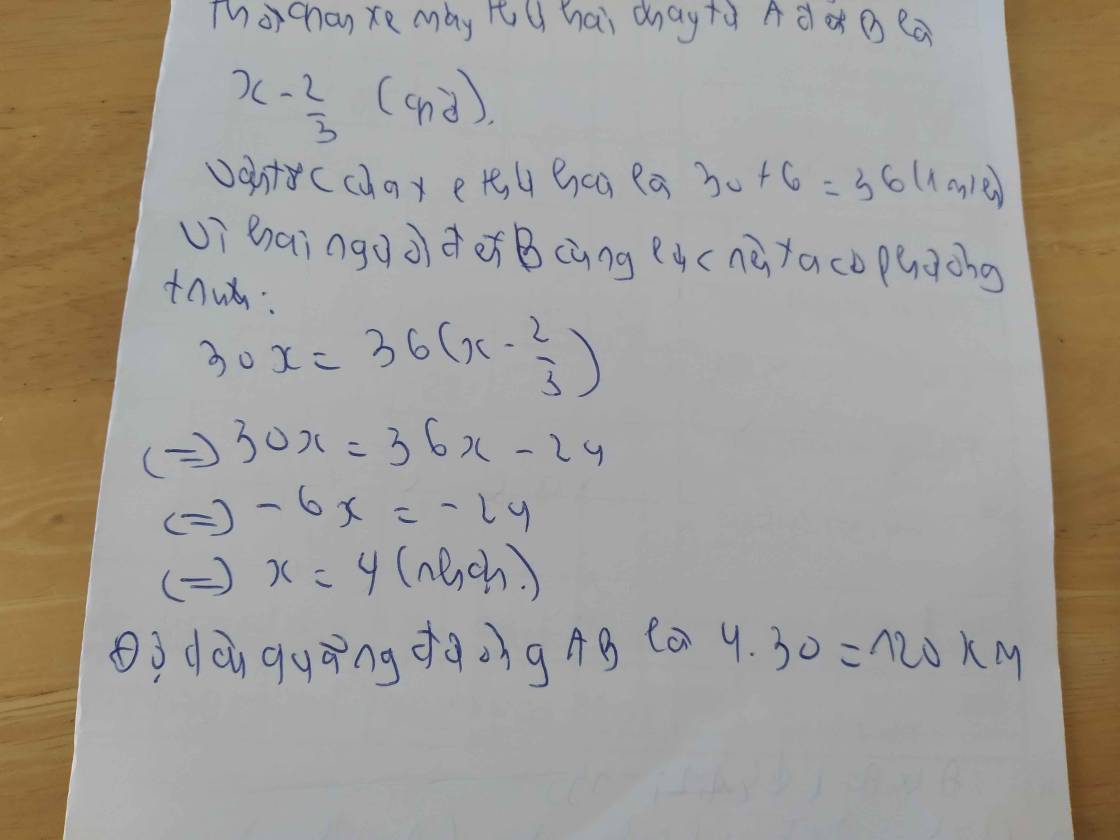 Thời gian xe máy thứ hai chạy từ A đến B là
x - 2/3 (giờ).
Vận tốc của xe thứ hai là 30 + 6 = 36 (km/h)
Vì hai người đến B cùng lúc nên ta có phương
trình:
30x = 36(x - 2/3)
(=) 30x = 36x - 24
(=) -6x = -24
(=) x = 4 (nhận.)
Độ dài quãng đường AB là 4.30 = 120 KM